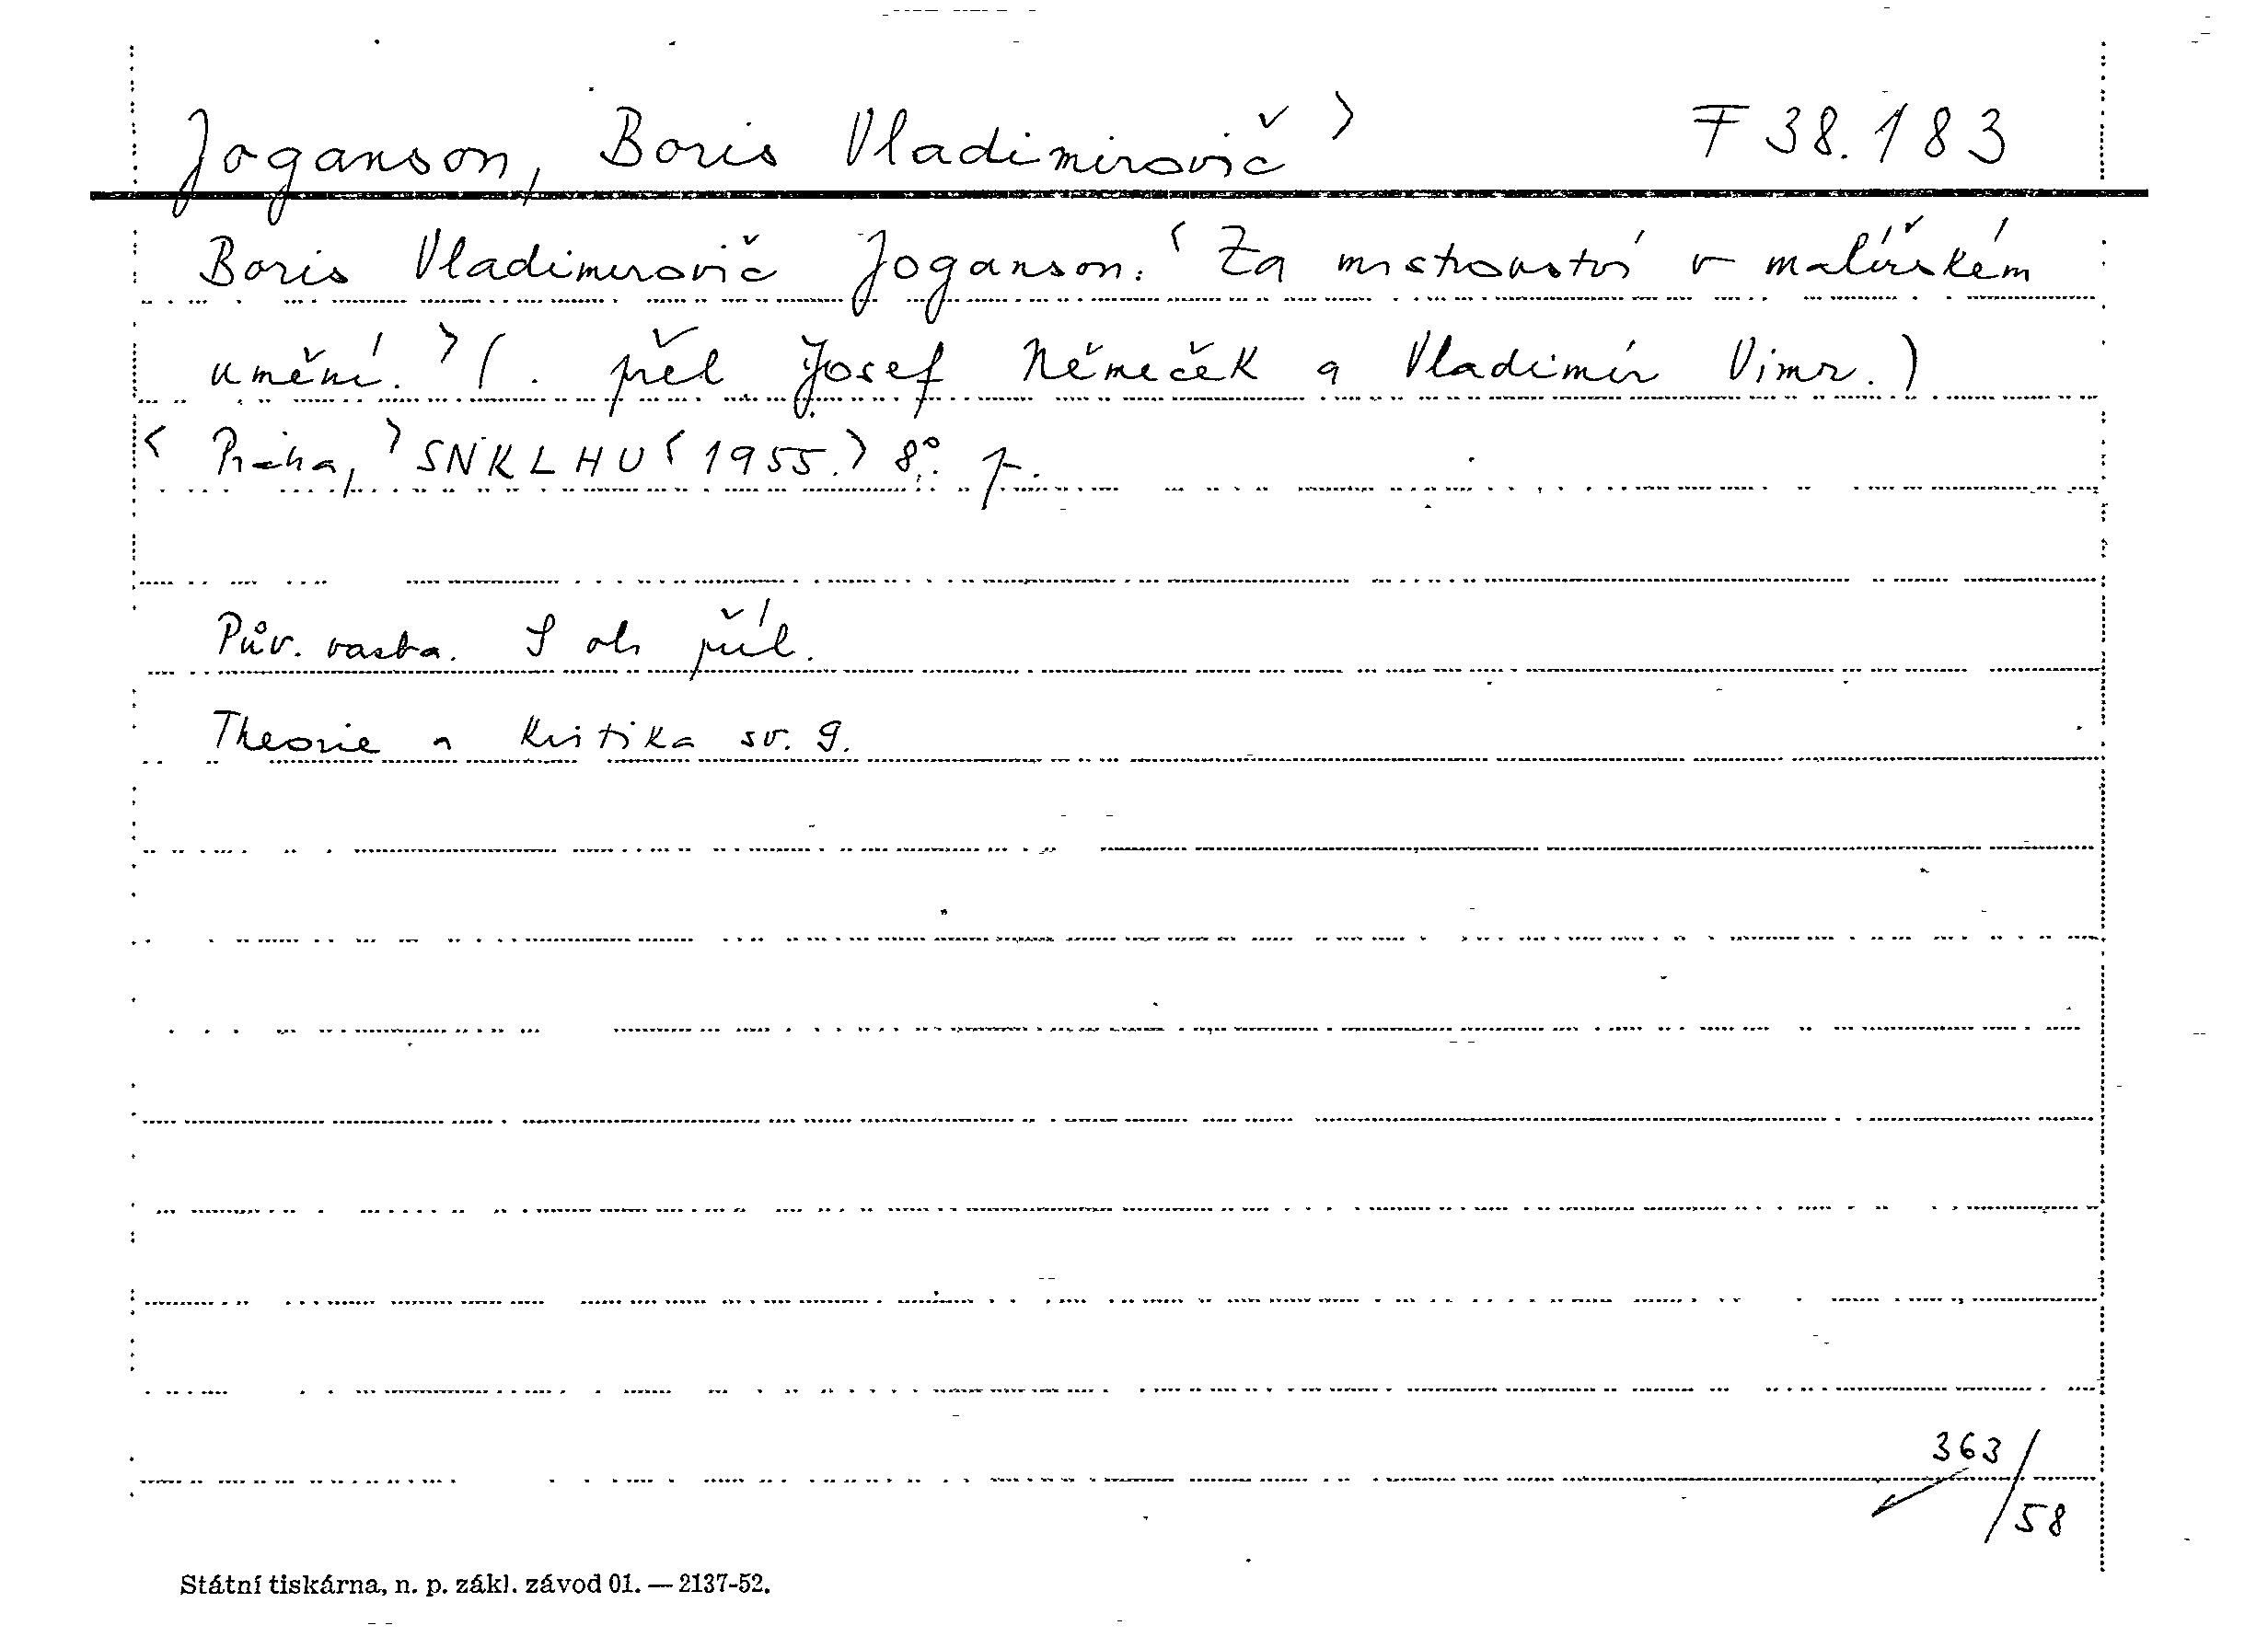 Joganson, Boris Vladimirovič > F 38.183
Boris Vladimirovič Joganson: < Za mistrovství v malířském
umění. > ( . přel Josef Němeček a Vladimír Vimr. )
< Praha, > SNKLHU < 1955. > 8°.
Pův. vazba. S obr příl.
Theorie a kritika sv. 9.
363/58
Státní tiskárna, n. p. zákl. závod 01. — 2137-52.